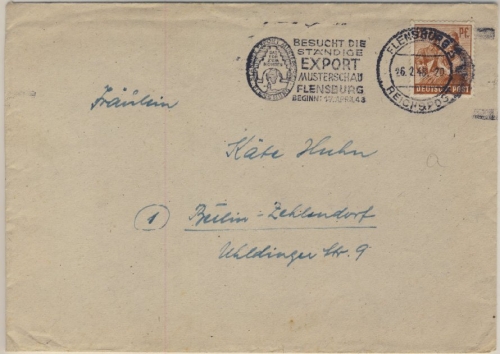 BESUCHT DIE
STÄNDIGE
EXPORT
MUSTERSCHAU
FLENSBURG
BEGINNT 12. APRIL 48
FLENSBURG
26.2.48 - 20
REICHSPOS
Pf.
DEUTSCHE POST
Fräulein
Käte Huhn
a
1 Berlin-Zehlendorf
Str. 9